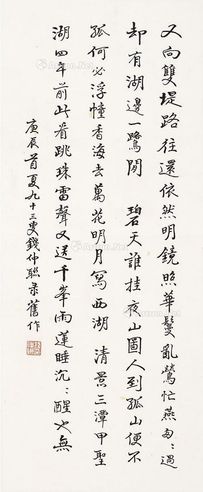 又向雙堤路往還依然明鏡照華鬘亂鶯忙燕匆匆過
却有湖邊一鷺閒 碧天誰挂夜山圖人到孤山便不
孤何必浮幢香海去萬花明月寫西湖 清景三潭甲聖
湖四年前此看跳珠雷聲又送千峯雨蓮睡沉沉醒也無
庚辰首夏九十三叟錢仲聯录舊作